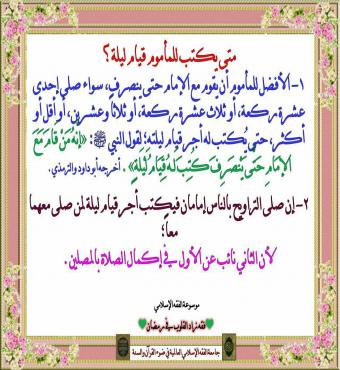 متى يكتب للمأموم قيام ليلة ؟
١- الأفضل للمأموم أن يقوم مع الإمام حتى ينصرف، سواء صلى إحدى
عشرة ركعة، أو ثلاث عشرة ركعة، أو ثلاثاً وعشرين، أو أقل أو
أكثر، حتى يُكتب له أجر قيام ليلته؛ لقول النبي ﷺ: «إِنَّهُ مَنْ قَامَ مَعَ
الإِمَامِ حَتَّى يَنْصَرِفَ كُتِبَ لَهُ قِيَامُ لَيْلَةٍ». أخرجه أبو داود والترمذي.
٢- إن صلى التراويح بالناس إمامان فيكتب أجر قيام ليلة لمن صلى معهما
معاً؛
لأن الثاني نائب عن الأول في إكمال الصلاة بالمصلين.
موسوعة الفقه الإسلامي
فقه زاد القلوب في رمضان
جامعة الفقه الإسلامي العالمية في ضوء القرآن والسنة